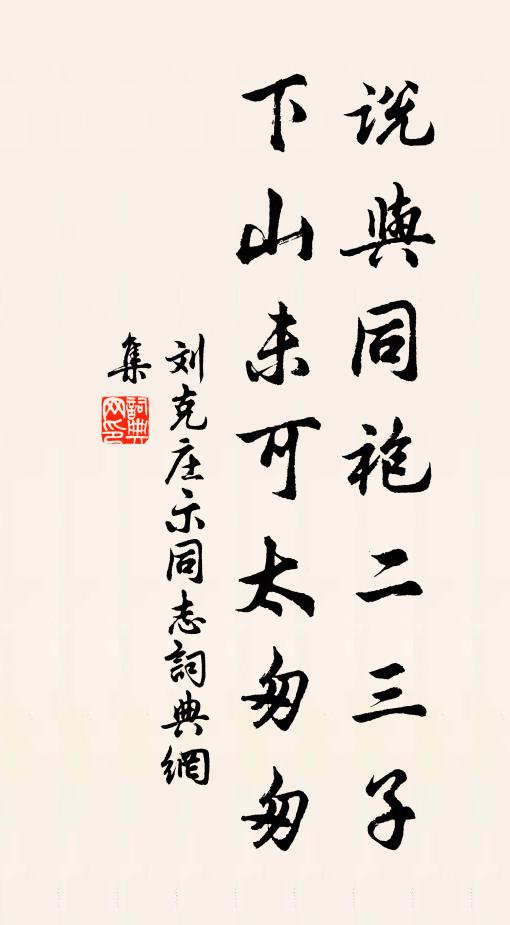 说與同袍二三子
下山未可太匆匆
刘克庄示同志詞典網
集
詞典网印